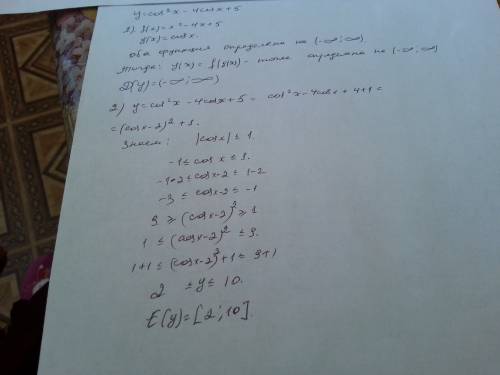 y=cos²x - 4cosx+5
1) f(x)=x²-4x+5
g(x)=cosx.
оба функции определена на (-∞;∞)
тогда: y(x)=f(g(x)) - тоже определена на (-∞;∞)
D(y)=(-∞;∞)
2) y=cos²x-4cosx+5= cos²x-4cosx+4+1=
=(cosx-2)²+1.
Знаем: |cosx|≤1.
-1≤cosx≤1.
-1-2≤cosx-2≤1-2
-3≤cosx-2≤-1
9≥(cosx-2)²≥1
1≤(cosx-2)²≤9.
1+1≤(cosx-2)²+1≤9+1
2≤y≤10.
E(y)=[2;10].